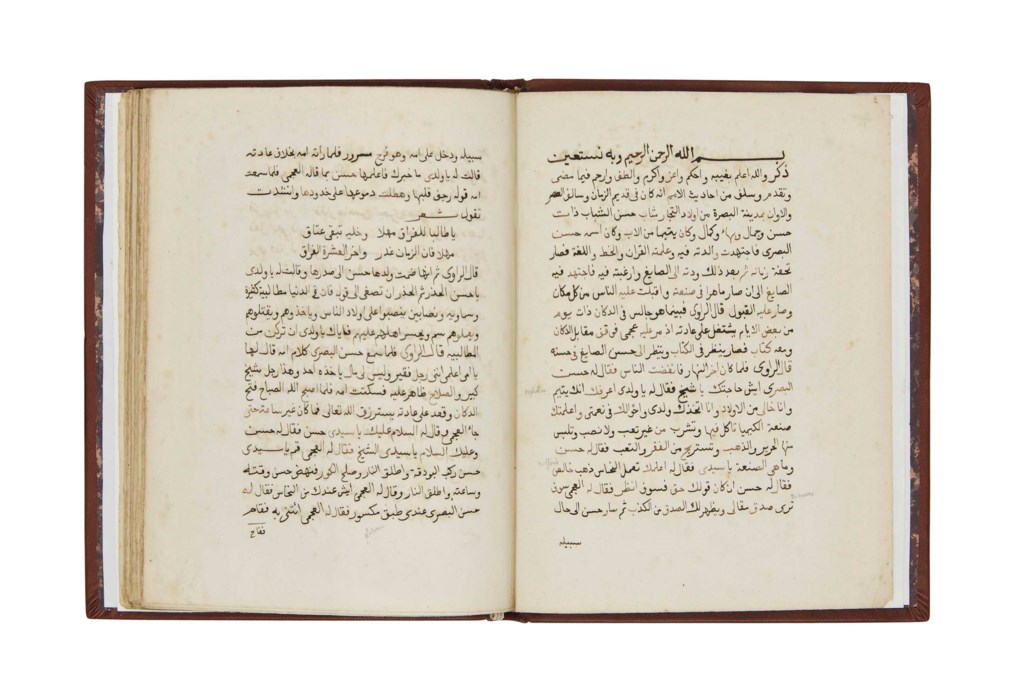 بسم الله الرحمن الرحيم وبه نستعين
ذكر والله اعلم بغيبه واحكم واعز واكرم والطف وارحم فيما مضى
وتقدم وسلف من احاديث الامم انه كان في قديم الزمان وسالف العصر
والاوان بمدينة البصرة من اولاد التجار شاب حسن الشباب ذات
حسن وجمال وبهاء وكمال وكان يتيما من الاب وكان اسمه حسن
البصرى فاجتهدت والدته فيه وعلمته القران والخط واللغة فصار
تحفة زمانه ثم بعد ذلك ودته الى الصايغ وارغبته فيه فاجتهد فيه
الصايغ الى ان صار ماهرا في صنعته واقبلت عليه الناس من كل مكان
وصار عليه القبول قال الراوى فبينما هو جالس في الدكان ذات يوم
من بعض الايام يشتغل على عادته اذ مر عليه عجمى فوقف مقابل الدكان
ومعه كتاب فصار ينظر في الكتاب وينظر الى حسن الصايغ في حسنه
قال الراوى فلما كان اخر النهار فانفضت الناس فقال له حسن
البصرى ايش حاجتك يا شيخ فقال له يا ولدى اعرفك انك يتيم
وانا خالى من الاولاد وانا اتخذك ولدى واخولك في نعمتى واعلمتك
صنعة الكيميا تاكل فيها وتشرب من غير تعب ولا نصب وتلبس
منها الحرير والذهب وتستريح من الفقر والتعب فقال له حسن
وما هى الصنعة يا سيدى فقال له اعلمك تعمل النحاس ذهب خالص
فقال له حسن ان كان قولك حق فسوف انظر فقال له العجمى سوف
ترى صدق مقالى ويظهر لك الصدق من الكذب ثم سار حسن الى حال
سبيله
سبيله ودخل على امه وهو فرح مسرور فلما راته امه بخلاف عادته
قالت له يا ولدى ما خبرك فاعلمها حسن بما قاله العجمى فلما سمعت
امه قوله رجف قلبها وهطلت دموعها على خدودها وانشدت
تقول شعر
يا طالبا للفراق مهلا وخليه تبقى عناق
مهلا فان الزمان غدر واخر العشرة الفراق
قال الراوى ثم انها ضمت ولدها حسن الى صدرها وقالت له يا ولدى
يا حسن الحذر ثم الحذر ان تصغى الى قوله فان في الدنيا مطالبية كثيرة
وسماويه ونصابين ينصبوا على اولاد الناس وياخذوهم ويقتلوهم
ويعدموهم ويحسروا اهلهم عليهم فاياك يا ولدى ان تركن من
المطالبيه قال الراوى فلما سمع حسن البصرى كلام امه قال لها
يا امى اعلمى اننى رجل فقير وليس لى مال ياخذه احد وهذا رجل شيخ
كبير والصلاح ظاهر عليه فسكتت امه فلما اصبح الله الصباح فتح
الدكان وقعد على عادته يسترزق الله تعالى فما كان غير ساعة حتى
جاء العجمى وقال له السلام عليك يا سيدى حسن فقال له حسن
وعليك السلام يا سيدى الشيخ فقال له العجمى قم يا سيدى
حسن ركب البودقه واطلق النار وصلح الكور فنهض حسن وقته
وساعته واطلق النار وقال له العجمى ايش عندك من النحاس فقال له
حسن البصرى عندى طبق مكسور فقال له العجمى ائتنى به فقام